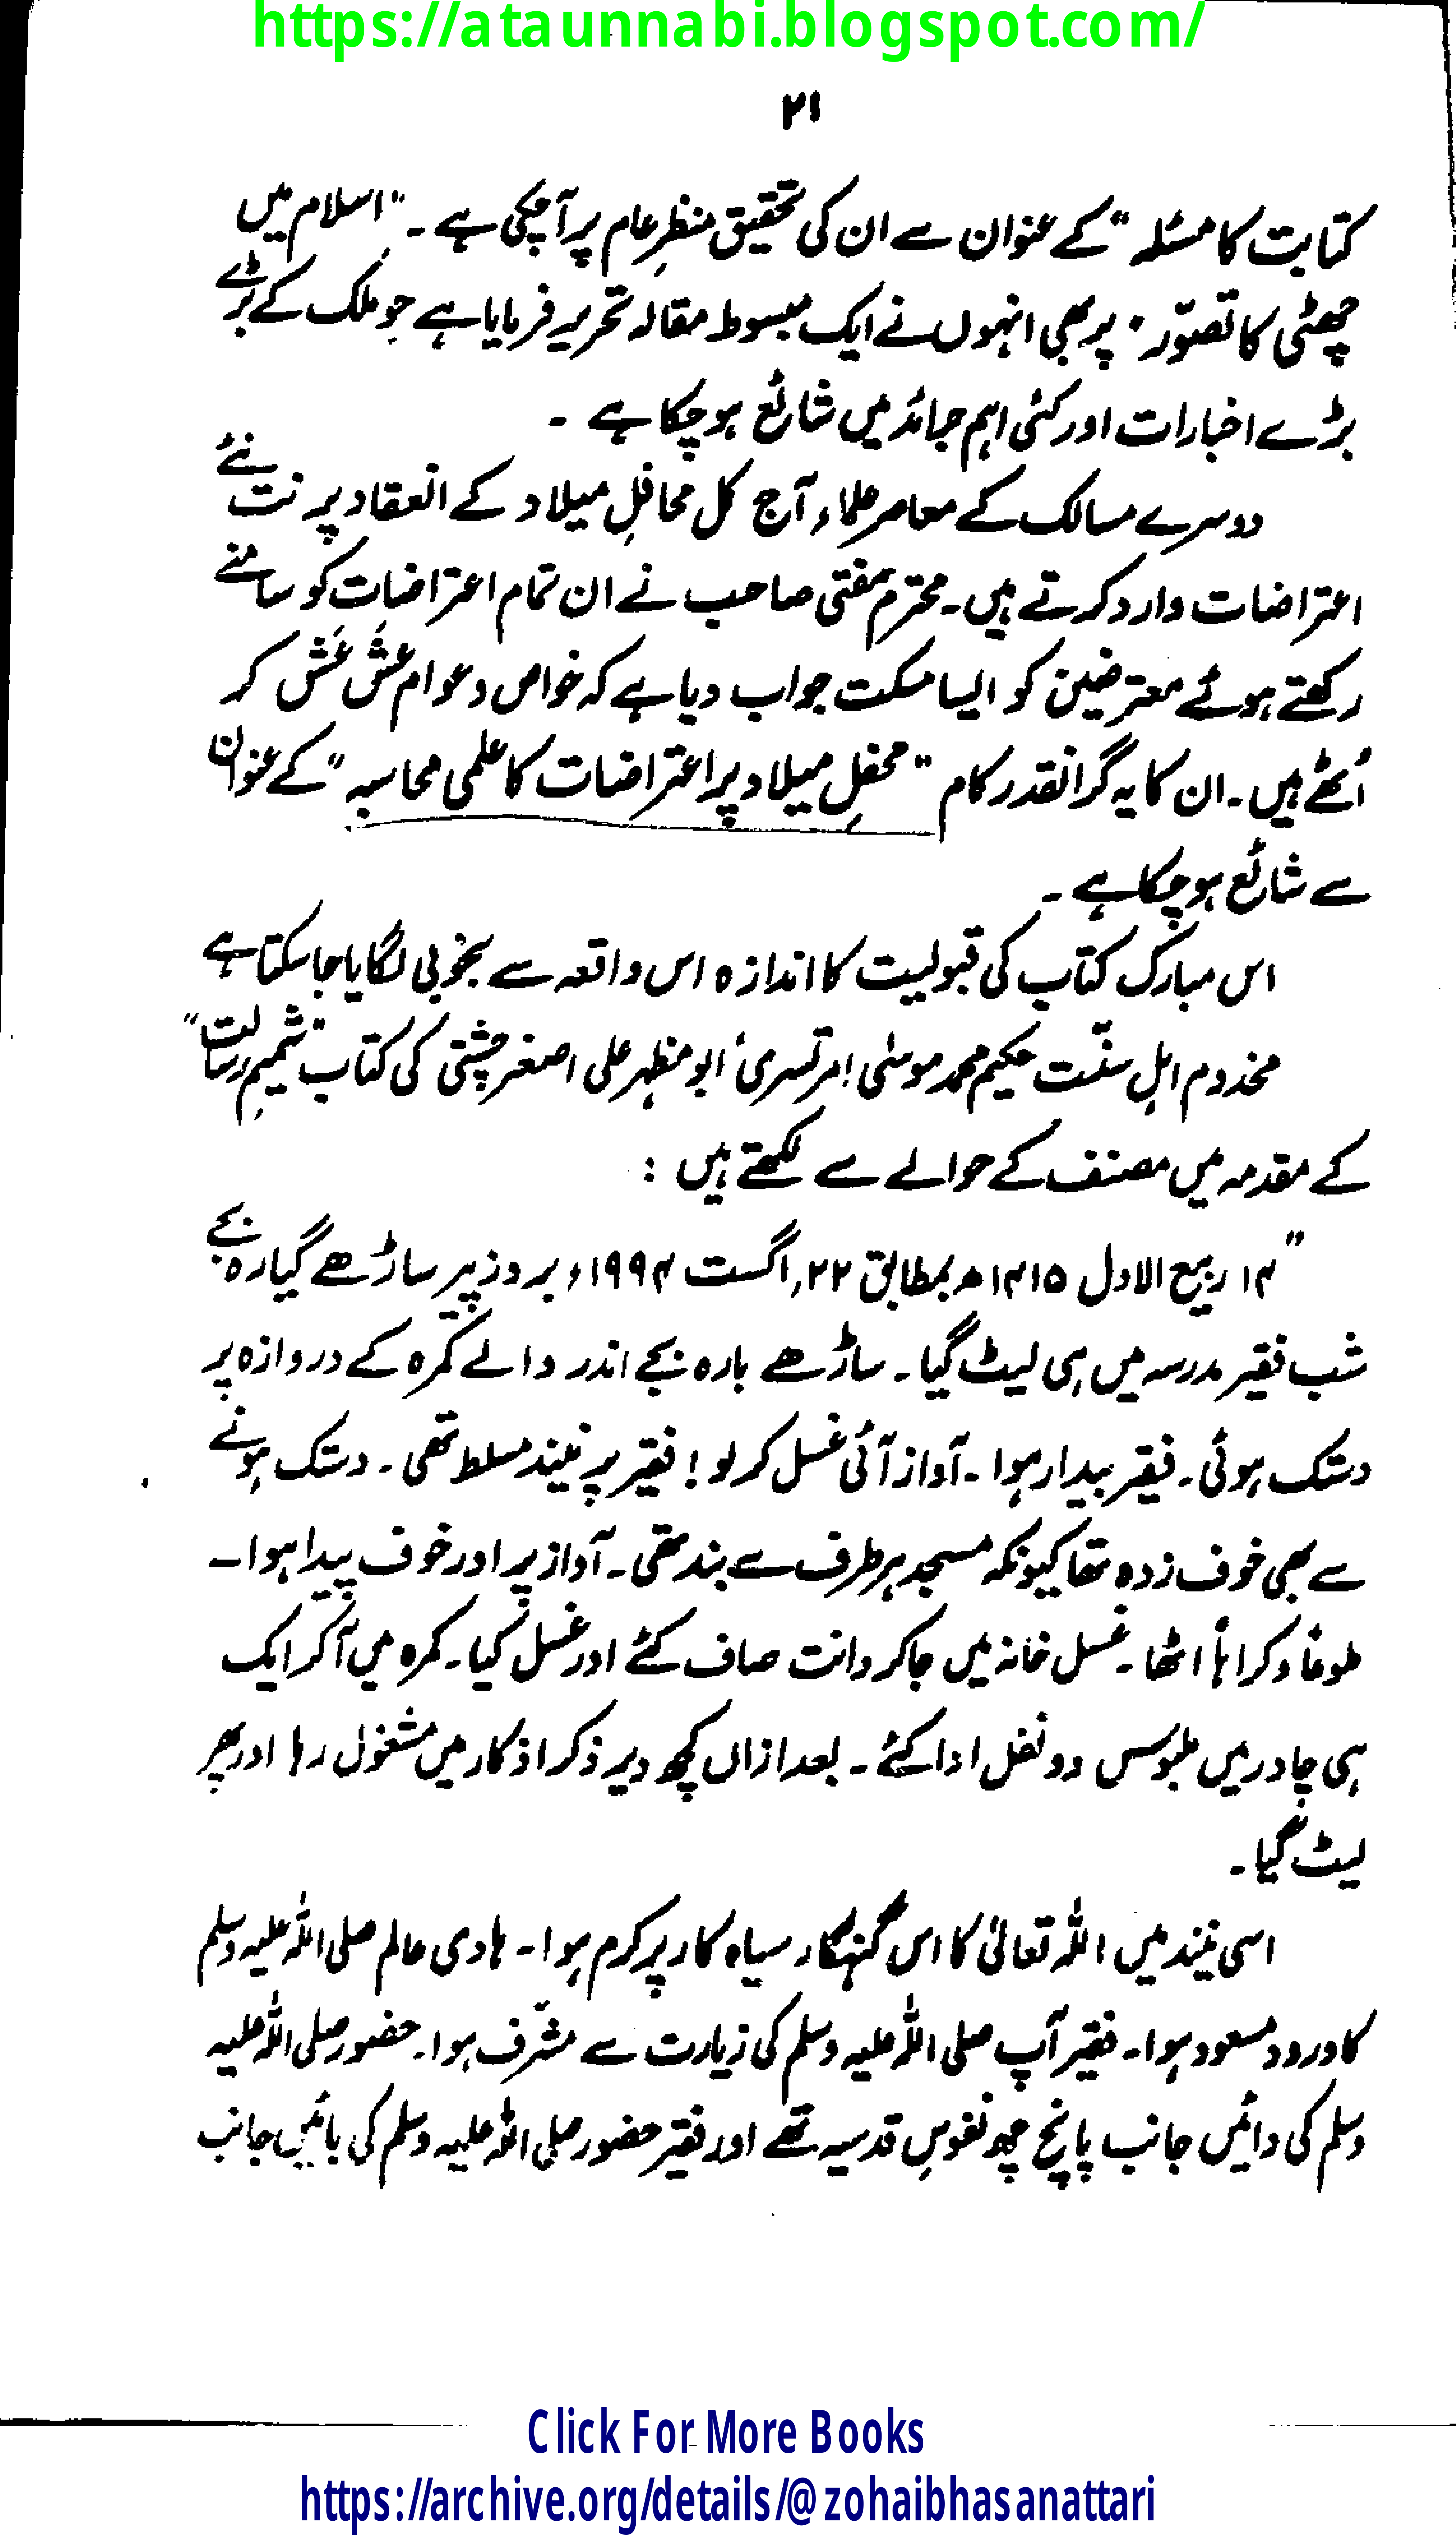 https://ataunnabi.blogspot.com/
۲۱
کتابت کا مسئلہ" کے عنوان سے ان کی تحقیق منظرِ عام پر آچکی ہے ۔ "اسلام میں
چھٹی کا تصوّر" پر بھی انہوں نے ایک مبسوط مقالہ تحریر فرمایا ہے جو ملک کے بڑے
بڑے اخبارات اور کئی اہم جرائد میں شائع ہو چکا ہے ۔
دوسرے مسالک کے معاصر علماء آج کل محافلِ میلاد کے انعقاد پر نت نئے
اعتراضات وارد کرتے ہیں۔ محترم مفتی صاحب نے ان تمام اعتراضات کو سامنے
رکھتے ہوئے معترضین کو ایسا مسکت جواب دیا ہے کہ خواص و عوام عَش عَش کر
اُٹھے ہیں۔ ان کا یہ گرانقدر کام "محفلِ میلاد پر اعتراضات کا علمی محاسبہ" کے عنوان
سے شائع ہو چکا ہے ۔
اس مبارک کتاب کی قبولیت کا اندازہ اس واقعہ سے بخوبی لگایا جا سکتا ہے
مخدوم اہلِ سنّت حکیم محمد موسٰی امرتسری، ابو مظہر علی اصغر چشتی کی کتاب "شمیمِ رسالت"
کے مقدمہ میں مصنف کے حوالے سے لکھتے ہیں :
"۱۴ ربیع الاول ۱۴۱۵ھ بمطابق ۲۲؍ اگست ۱۹۹۴ء بروز پیر ساڑھے گیارہ بجے
شب فقیر مدرسہ میں ہی لیٹ گیا ۔ ساڑھے بارہ بجے اندر والے کمرہ کے دروازہ پر
دستک ہوئی۔ فقیر بیدار ہوا ۔ آواز آئی غسل کر لو ! فقیر پر نیند مسلط تھی ۔ دستک ہونے
سے بھی خوف زدہ تھا کیونکہ مسجد ہر طرف سے بند تھی۔ آواز پر اور خوف پیدا ہوا ۔
طوعاً وکراہاً اٹھا ۔ غسل خانہ میں جا کر دانت صاف کئے اور غسل کیا۔ کمرہ میں آکر ایک
ہی چادر میں ملبوس دو نفل ادا کئے ۔ بعد ازاں کچھ دیر ذکر اذکار میں مشغول رہا اور پھر
لیٹ گیا ۔
اسی نیند میں اللہ تعالیٰ کا اس گنہگار سیاہ کار پر کرم ہوا ۔ ہادی عالم صلی اللہ علیہ وسلم
کا ورود مسعود ہوا۔ فقیر آپ صلی اللہ علیہ وسلم کی زیارت سے مشرّف ہوا۔ حضور صلی اللہ علیہ
وسلم کی دائیں جانب پانچ چھ نفوسِ قدسیہ تھے اور فقیر حضور صلی اللہ علیہ وسلم کی بائیں جانب
Click For More Books
https://archive.org/details/@zohaibhasanattari